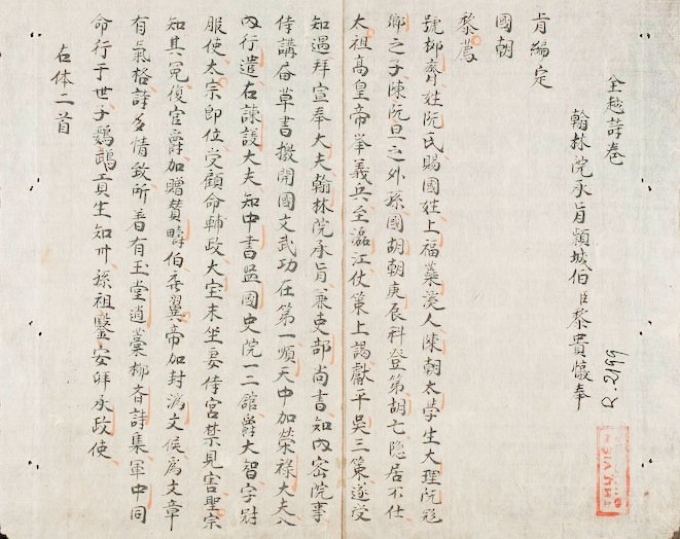 全越詩卷
翰林院承旨潁城伯臣黎貴惇奉
旨編定
國朝
黎廌
號抑齋姓阮氏賜國姓上福蘂溪人陳朝太學生大理阮飛
卿之子陳阮旦之外孫國胡朝庚辰科登第胡亡隐居不仕
太祖高皇帝举義兵至瀘江仗策上謁獻平吳三策遂受
知遇拜宣奉大夫翰林院承旨兼吏部尚書知內密院事
侍講居草書撥開國文武功在第一順天中加榮禄大夫入
內行遣右諫議大夫知中書監國史院一二館爵大智字尉
服使太宗即位受顧命輔政大宝末坐妾侍宮禁見害聖宗
知其冤復官爵加贈賛疇伯襄翼帝加封済文侯為文章
有氣格詩多情致所著有玉堂遺藁抑斎詩集軍中同
命行于世子鸚鵡員生知州孫祖鑒安拜承政使
右体二首
R.2199